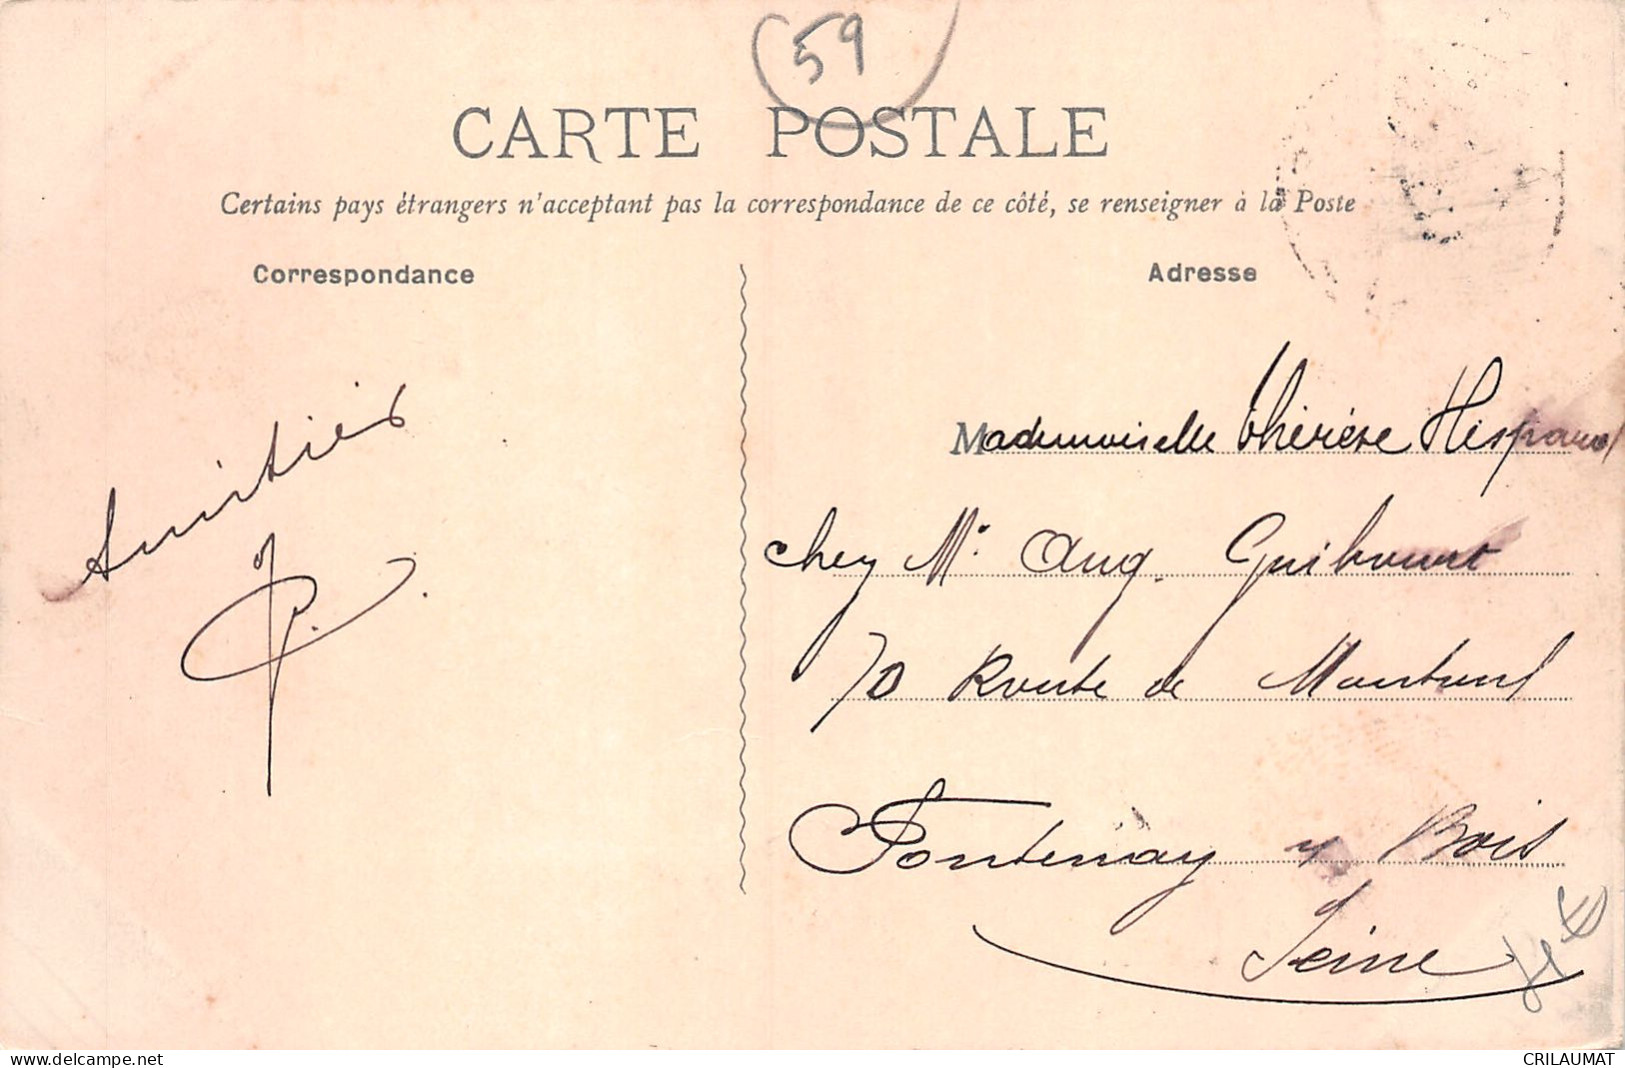 59
CARTE POSTALE
Certains pays étrangers n'acceptant pas la correspondance de ce côté, se renseigner à la Poste
Correspondance
Adresse
Amitiés
Mademoiselle Thérèse
chez Mr Aug. Guibourt
70 Route de Montreuil
Fontenay s/ Bois
Seine
www.delcampe.net
CRILAUMAT